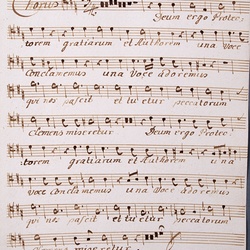 Chorus Deum ergo Protec:
torem gratiarum et Authorem una Voce
Conclamemus una Voce adoremus
qui nos pascit et tuetur peccatorum
clemens miseretur Deum ergo Protec:
torem gratiarum et Authorem una
Voce conclamemus una Voce adoremus
qui nos pascit et tuetur peccatorum
miseretur